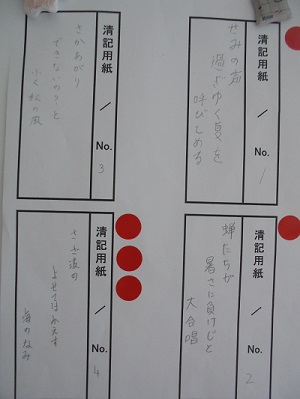 清記用紙 / No. 1
せみの声
過ぎゆく夏を
呼びとめる
清記用紙 / No. 2
蝉たちが
暑さに負けじと
大合唱
清記用紙 / No. 3
さかあがり
できないのっと
ふく秋の風
清記用紙 / No. 4
ささ波の
よせてはかえす
海のなみ